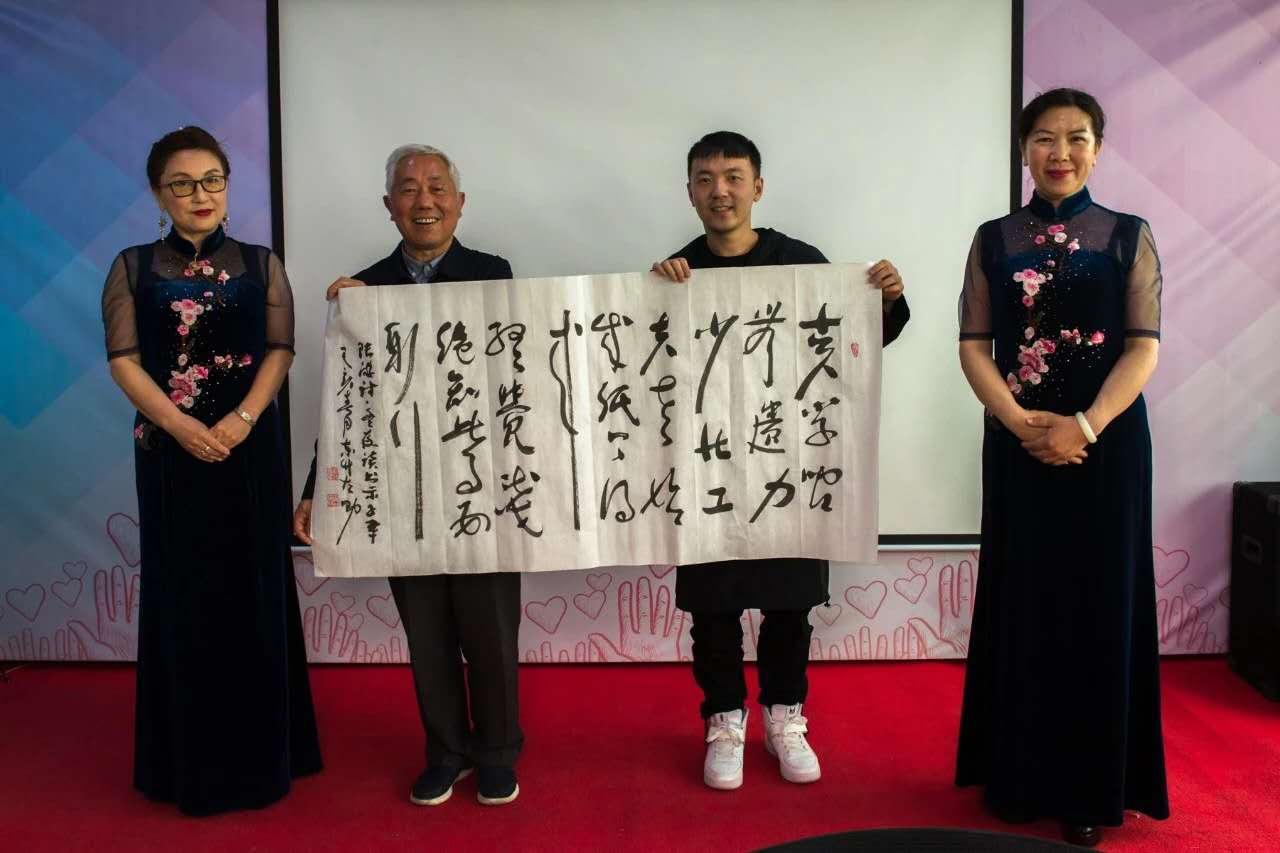 古人学问
无遗力
少壮工
夫老始
成纸上得
来
终觉浅
绝知此事要
躬行
陆游诗·冬夜读书示子聿